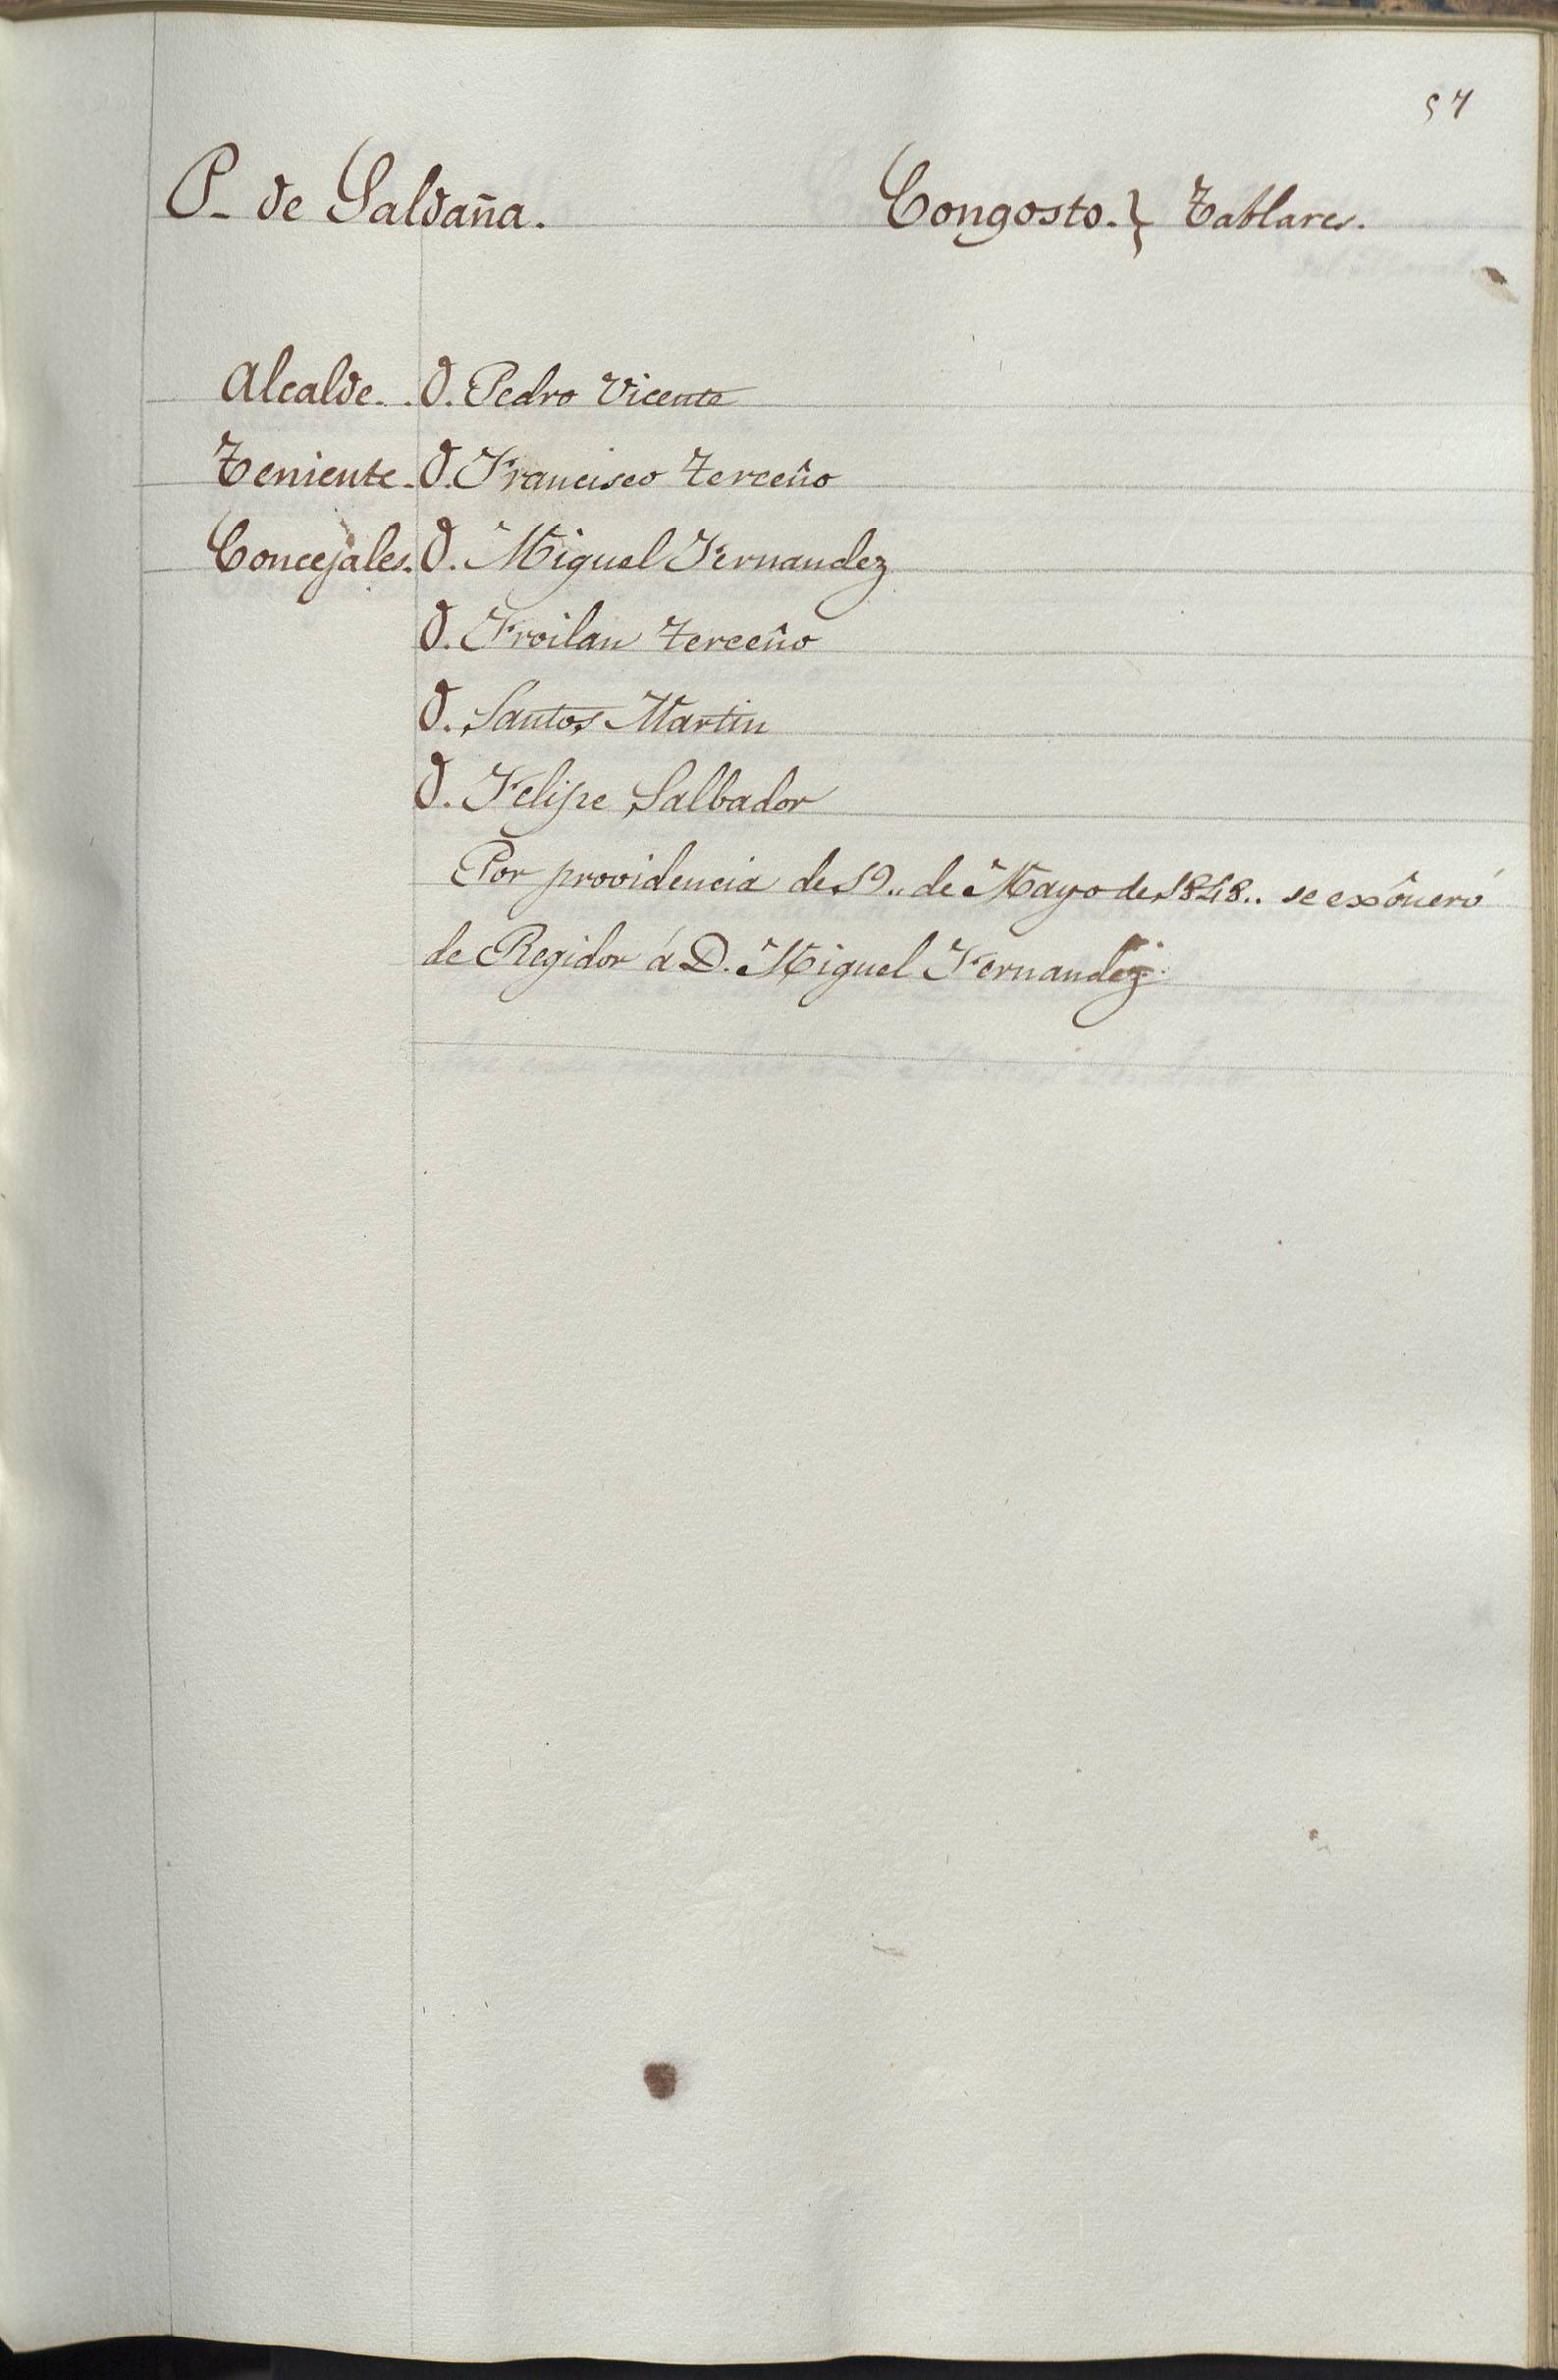 57
P. de Saldaña. Congosto. } Tablares.
Alcalde. . D. Pedro Vicente
Teniente. D. Francisco Terceño
Concejales. D. Miguel Fernandez
D. Froilan Terceño
D. Santos Martin
D. Felipe Salbador
Por providencia de 19.. de Mayo de 1848.. se exôneró
de Regidor á D. Miguel Fernandez.